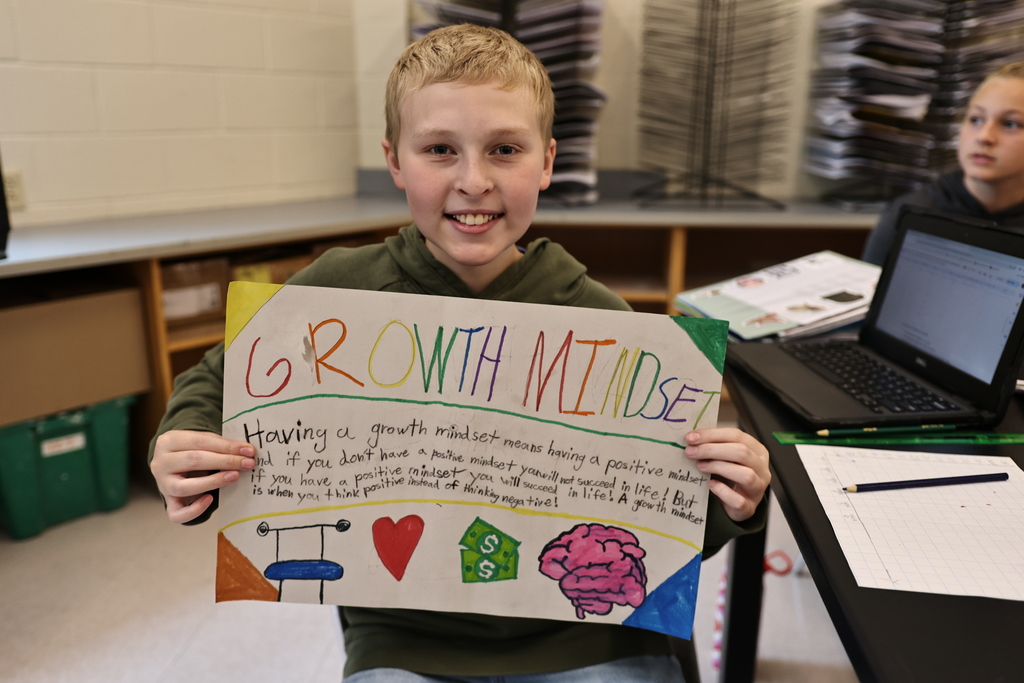 GROWTH MINDSET
Having a growth mindset means having a positive mindset
and if you don't have a positive mindset you will not succeed in life! But
if you have a positive mindset you will succeed in life! A growth mindset
is when you think positive instead of thinking negative!
$
$